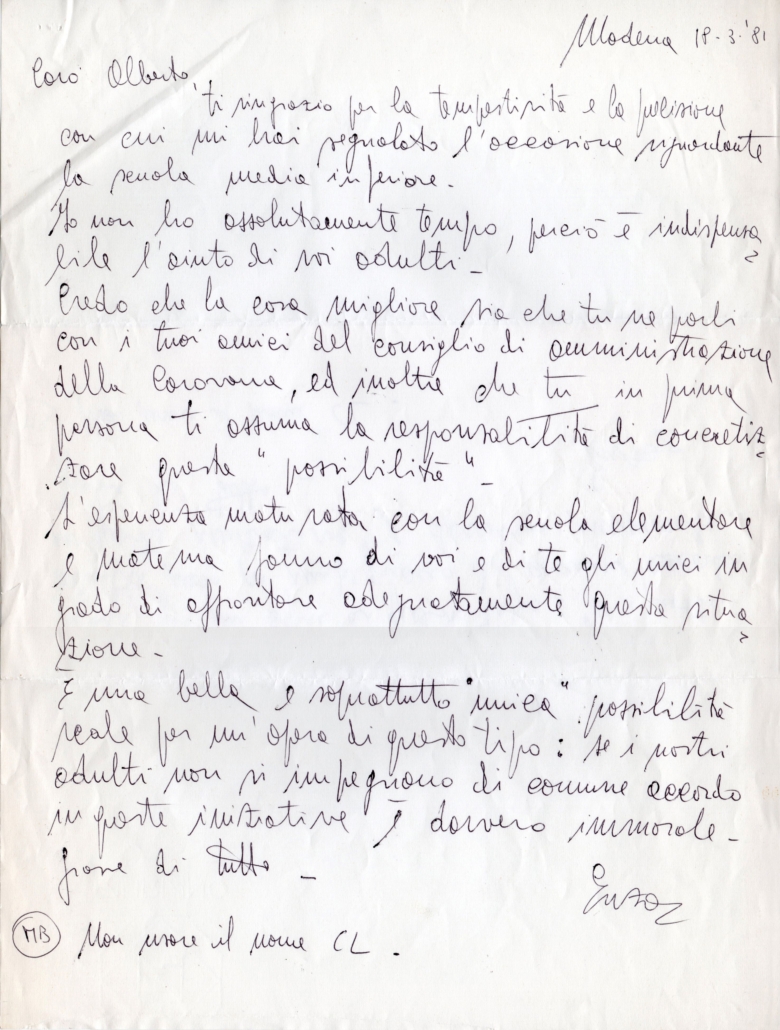 Modena 18.3.'81
Caro Alberto,
ti ringrazio per la tempestività e la precisione
con cui mi hai segnalato l'occasione riguardante
la scuola media inferiore.
Io non ho assolutamente tempo, perciò è indispensa
bile l'aiuto di voi adulti -
Credo che la cosa migliore sia che tu ne parli
con i tuoi amici del consiglio di amministrazione
della Carovana, ed inoltre che tu in prima
persona ti assuma la responsabilità di concretiz
zare questa "possibilità" -
L'esperienza maturata con la scuola elementare
e materna fanno di voi e di te gli unici in
grado di affrontare adeguatamente questa situa
zione -
È una bella e soprattutto "unica" possibilità
reale per un'opera di questo tipo: se i nostri
adulti non si impegnano di comune accordo
in queste iniziative è davvero immorale -
di tutto -
Enzo
MB Non usare il nome CL.